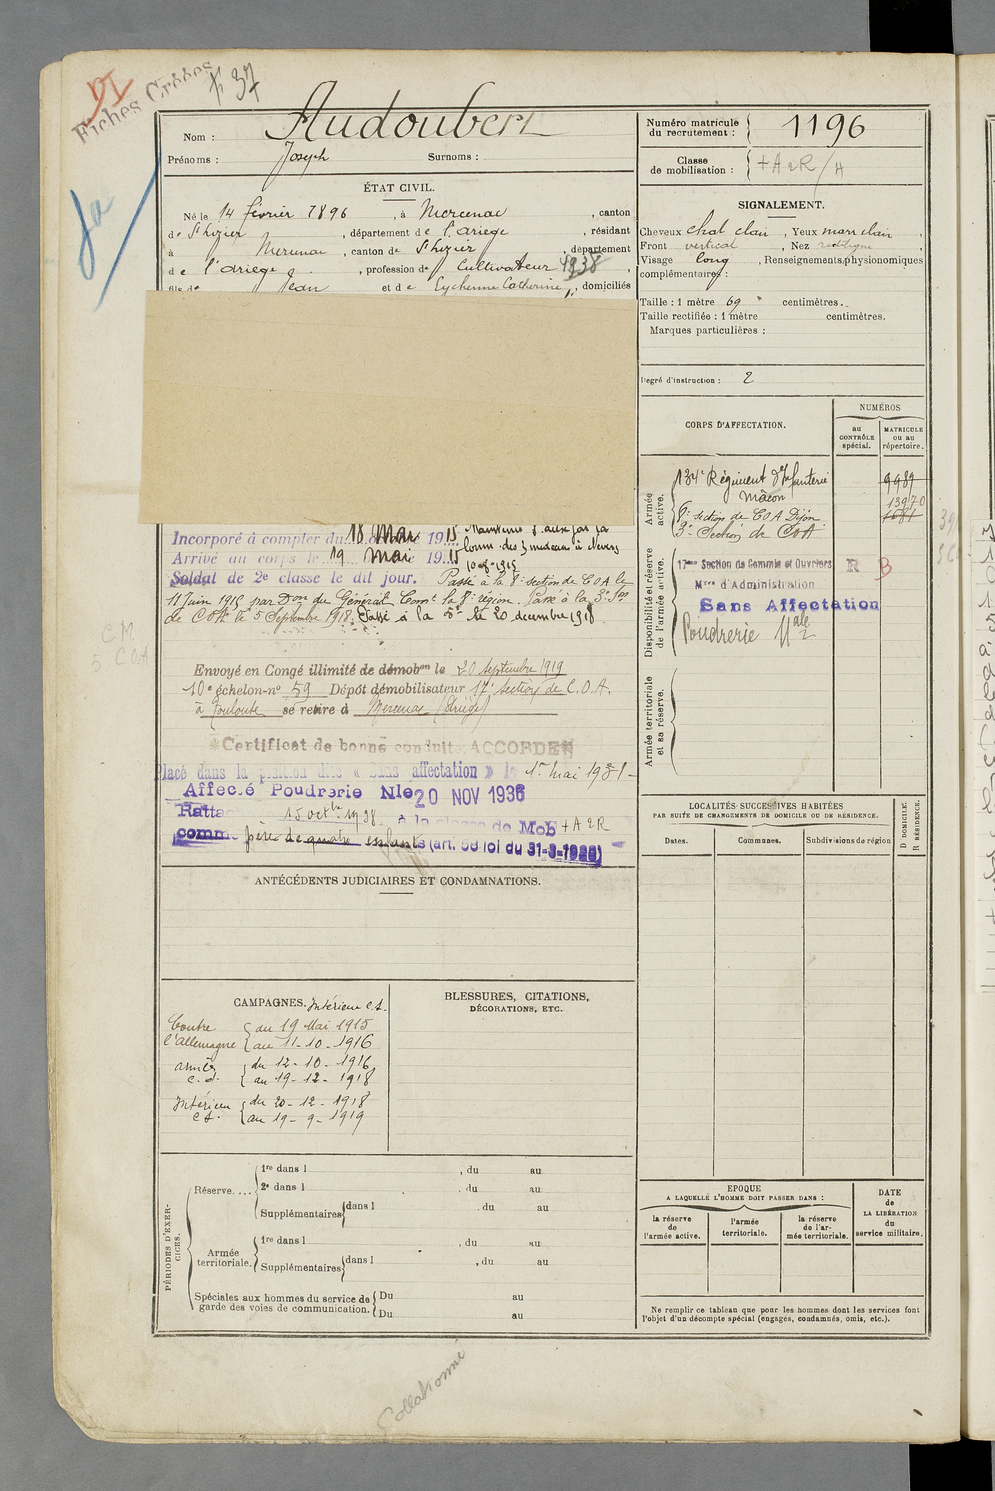 Fiches Créées
Nom : Audoubert
Prénoms : Joseph Surnoms :
Numéro matricule
du recrutement : 1196
Classe
de mobilisation :
ÉTAT CIVIL.
Né le 14 février 1896, à Mercenac, canton
de St Lizier, département de l'ariège, résidant
à Mercenac, canton de St Lizier, département
de l'ariège, profession de Cultivateur
fils de Jean et de Eychenne Catherine, domiciliés
SIGNALEMENT.
Cheveux chat clair, Yeux marr clair,
Front vertical, Nez rectiligne,
Visage long, Renseignements physionomiques
complémentaires :
Taille : 1 mètre 69 centimètres.
Taille rectifiée : 1 mètre centimètres.
Marques particulières :
Degré d'instruction : 2
CORPS D'AFFECTATION.
NUMÉROS
au
CONTRÔLE
spécial.
MATRICULE
ou au
répertoire.
Armée
active.
134e Régiment d'Infanterie
Mâcon
9989
13970
section de COA Dijon
3e Section de COA
Disponibilité et réserve
de l'armée active.
17me Section de Commis et Ouvriers
Mres d'Administration
R B
Sans Affectation
Poudrerie Nale
Armée territoriale
et sa réserve.
Incorporé à compter du 18 Mai 1915
Arrivé au corps le 19 Mai 1915
Soldat de 2e classe le dit jour. Passé à la 8e section de COA le
11 Juin 1915 par Don du Général Comt la 8e région. Passé à la 3e Son
de COA le 5 Septembre 1918. Passé à la 5e le 20 décembre 1918
C.M.
5 C.O.A
Envoyé en Congé illimité de démobon le 20 septembre 1919
10e échelon-no 59 Dépôt démobilisateur 17e section de C.O.A.
à Toulouse se retire à Mercenac (Ariège)
Certificat de bonne conduite ACCORDÉ
Placé dans la position dite « sans affectation » le 1er mai 1931
Affecté Poudrerie Nle 20 NOV 1936
15 octbre 1938 à la classe de Mob + A 2 R
comme père de quatre enfants (art. 58 loi du 31-3-1928)
LOCALITÉS SUCCESSIVES HABITÉES
PAR SUITE DE CHANGEMENTS DE DOMICILE OU DE RÉSIDENCE.
D DOMICILE.
R RÉSIDENCE.
Dates.
Communes.
Subdivisions de région
ANTÉCÉDENTS JUDICIAIRES ET CONDAMNATIONS.
CAMPAGNES. Intérieur C.S.
Contre
l'Allemagne
du 19 Mai 1915
au 11-10-1916
armées
du 12-10-1916
au 19-12-1918
Intérieur
du 20-12-1918
au 19-9-1919
BLESSURES, CITATIONS,
DÉCORATIONS, ETC.
PÉRIODES D'EXER-
CICES.
Réserve....
1re dans l , du au
2e dans l , du au
Supplémentaires dans l , du au
Armée
territoriale.
1re dans l , du au
Supplémentaires dans l , du au
Spéciales aux hommes du service de
garde des voies de communication.
Du au
Du au
EPOQUE
A LAQUELLE L'HOMME DOIT PASSER DANS :
la réserve
de
l'armée active.
l'armée
territoriale.
la réserve
de l'ar-
mée territoriale.
DATE
de
LA LIBÉRATION
du
service militaire.
Ne remplir ce tableau que pour les hommes dont les services font
l'objet d'un décompte spécial (engagés, condamnés, omis, etc.).
Collationné